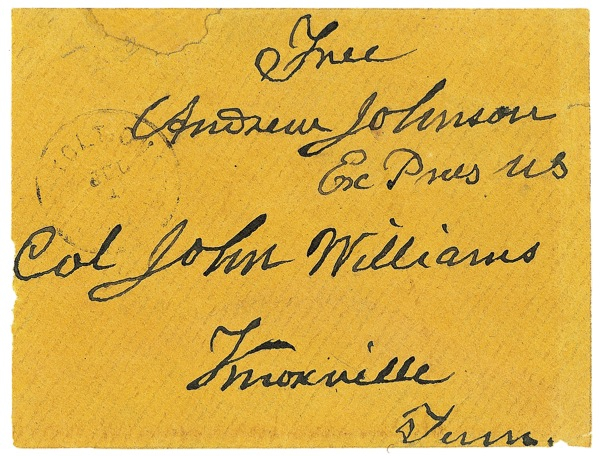 Free
Andrew Johnson
Ex Pres US
Col John Williams
Knoxville
Tenn.